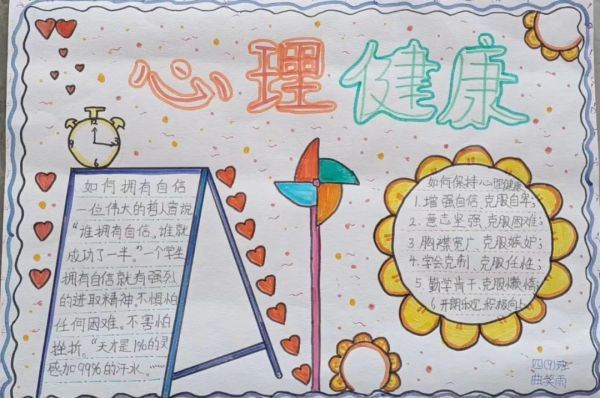 心理健康
如何拥有自信
一位伟大的哲人曾说
“谁拥有自信,谁就
成功了一半。”一个学生
拥有自信就有强烈
的进取精神,不惧怕
任何困难。不害怕
挫折。“天才是1%的灵
感加99%的汗水。……”
如何保持心理健康
1.增强自信、克服自卑;
2.意志坚强、克服困难;
3.胸襟宽广、克服嫉妒;
4.学会克制、克服任性;
5.勤学肯干、克服懒惰;
6.开朗乐观、积极向上。
四(9)班
曲笑雨